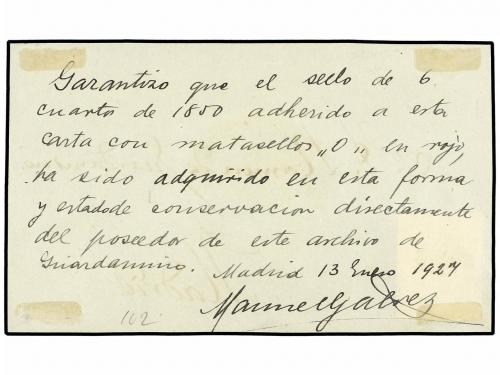 Garantizo que el sello de 6
cuartos de 1850 adherido a esta
carta con matasellos „O" en rojo,
ha sido adquirido en esta forma
y estado de conservacion directamente
del poseedor de este archivo de
Guardamino. Madrid 13 Enero 1927
Manuel Galvez
102